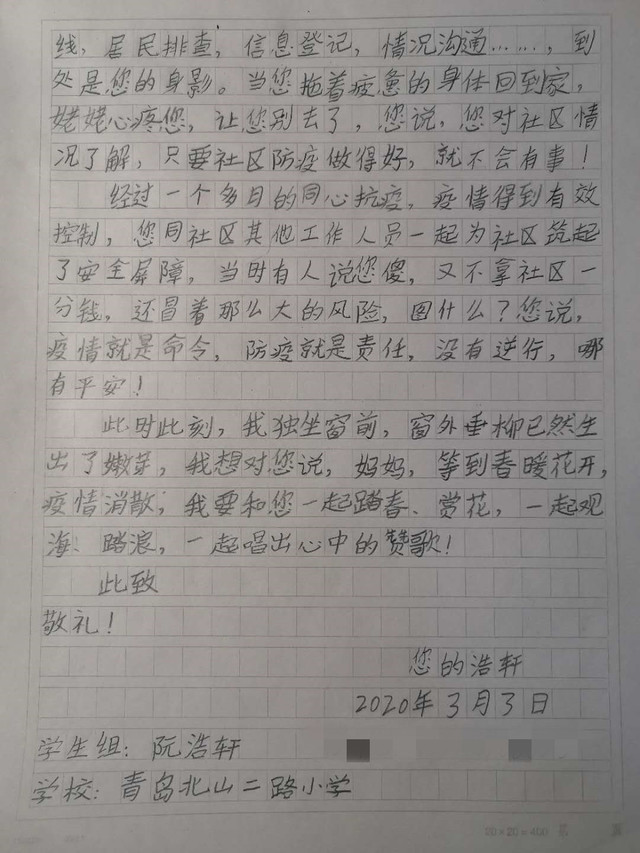 线，居民排查，信息登记，情况沟通……，到
处是您的身影。当您拖着疲惫的身体回到家，
姥姥心疼您，让您别去了，您说，您对社区情
况了解，只要社区防疫做得好，就不会有事！
经过一个多月的同心抗疫，疫情得到有效
控制，您同社区其他工作人员一起为社区筑起
了安全屏障，当时有人说您傻，又不拿社区一
分钱，还冒着那么大的风险，图什么？您说，
疫情就是命令，防疫就是责任，没有逆行，哪
有平安！
此时此刻，我独坐窗前，窗外垂柳已然生
出了嫩芽，我想对您说，妈妈，等到春暖花开，
疫情消散，我要和您一起踏春、赏花，一起观
海、踏浪，一起唱出心中的赞歌！
此致
敬礼！
您的浩轩
2020年3月3日
学生组：阮浩轩
学校：青岛北山二路小学
20×20=400